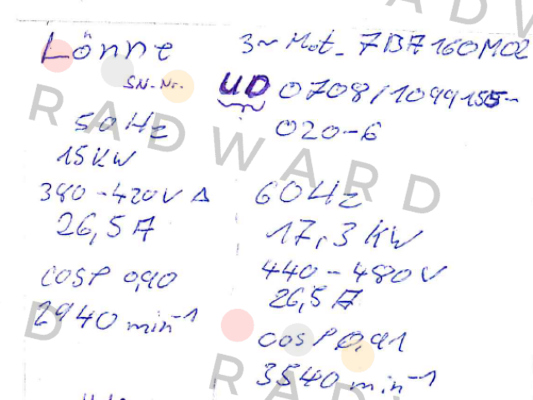 Lönne 3~ Mot. 7BA160M02
SN-Nr. UD 0708/1099155-
020-6
50Hz
15KW
380-420V Δ
26,5A
cosφ 0,90
2940 min⁻¹
60Hz
17,3KW
440-480V
26,5A
cosφ 0,91
3540 min⁻¹
RADWARD
RADWARD